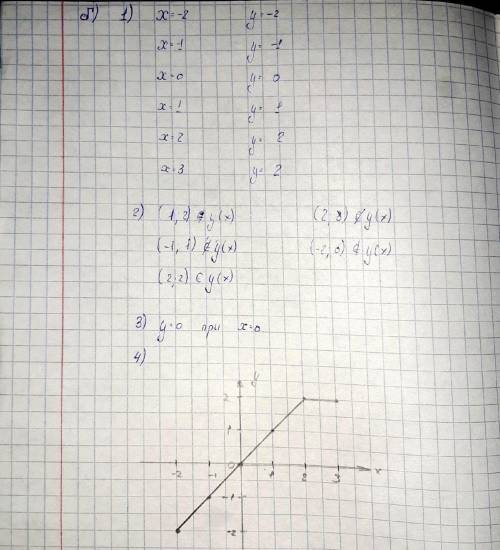 б) 1) x=-2 y=-2
x=-1 y=-1
x=0 y=0
x=1 y=1
x=2 y=2
x=3 y=2
2) (1;2) ∉ y(x) (2;3) ∉ y(x)
(-1;1) ∉ y(x) (-2;0) ∉ y(x)
(2;2) ∈ y(x)
3) y=0 при x=0
4)
y
2
1
-2 -1 0 1 2 3 x
-1
-2